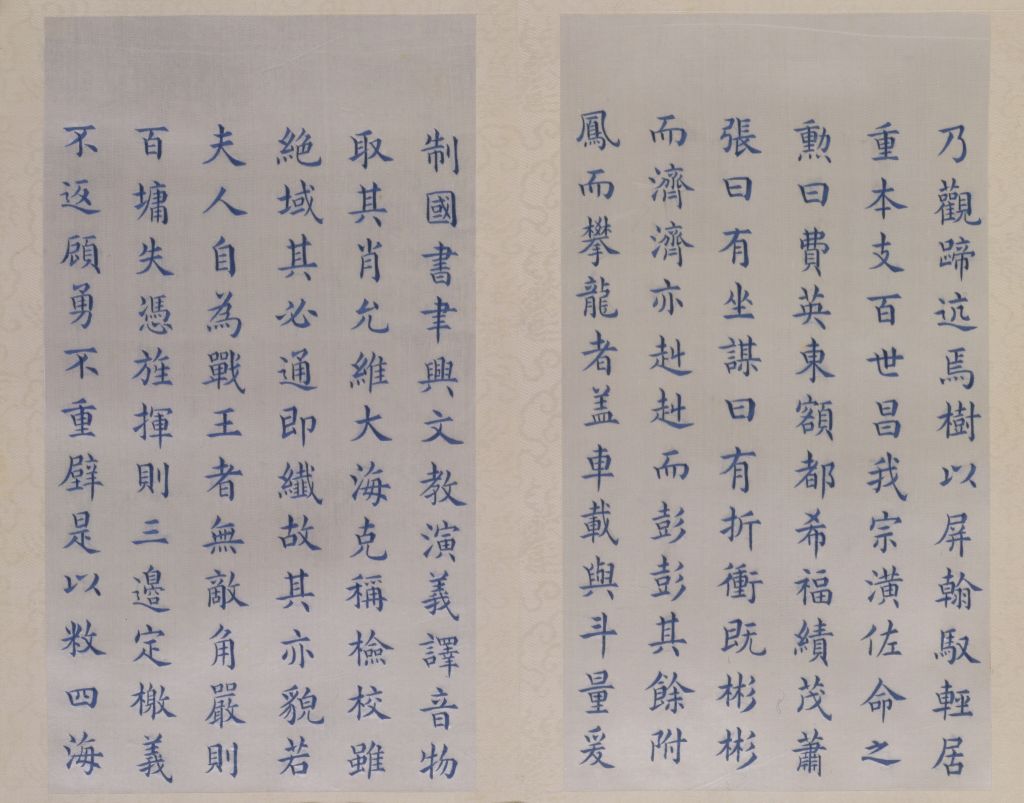 乃觀蹄迒焉樹以屏翰馭輕居
重本支百世昌我宗潢佐命之
勲曰費英東額都希福績茂蕭
張曰有坐謀曰有折衝既彬彬
而濟濟亦赳赳而彭彭其餘附
鳳而攀龍者盖車載與斗量爰
制國書聿興文教演義譯音物
取其肖允維大海克稱檢校雖
絶域其必通即纖故其亦貌若
夫人自為戰王者無敵角嚴則
百墉失憑旌揮則三邉定檄義
不返顧勇不重躃是以敉四海